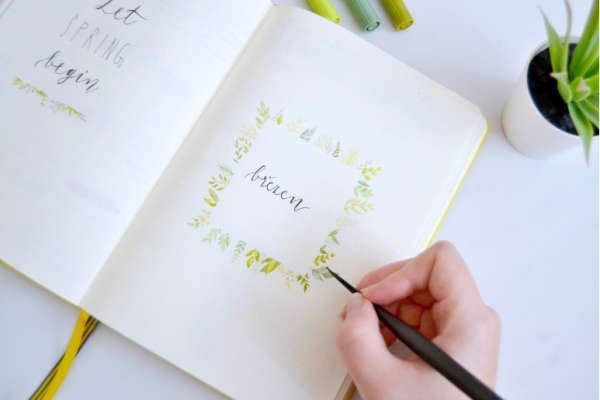 Let
SPRING
begin.
březen